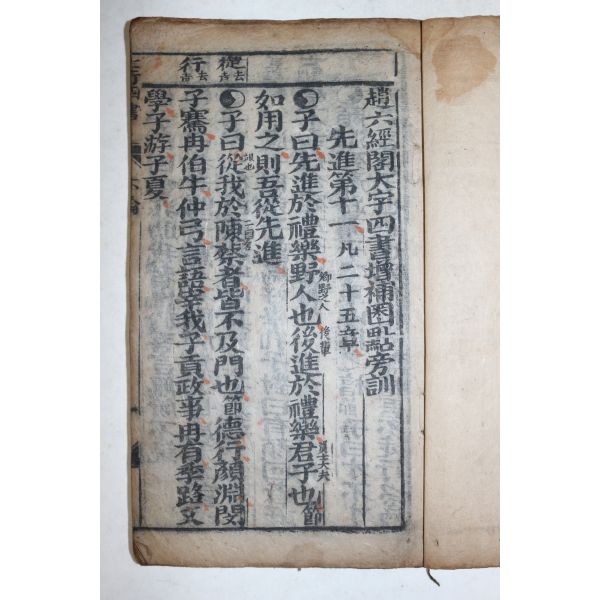 趙六經閣大字四書增補圈點旁訓
先進第十一凡二十五章
子曰先進於禮樂野人也後進於禮樂君子也節
鄉野之人
後輩
賢士大夫
如用之則吾從先進
子曰從我於陳蔡者皆不及門也節德行顏淵閔
子騫冉伯牛仲弓言語宰我子貢政事冉有季路文
學子游子夏
從去声
行去声
四書